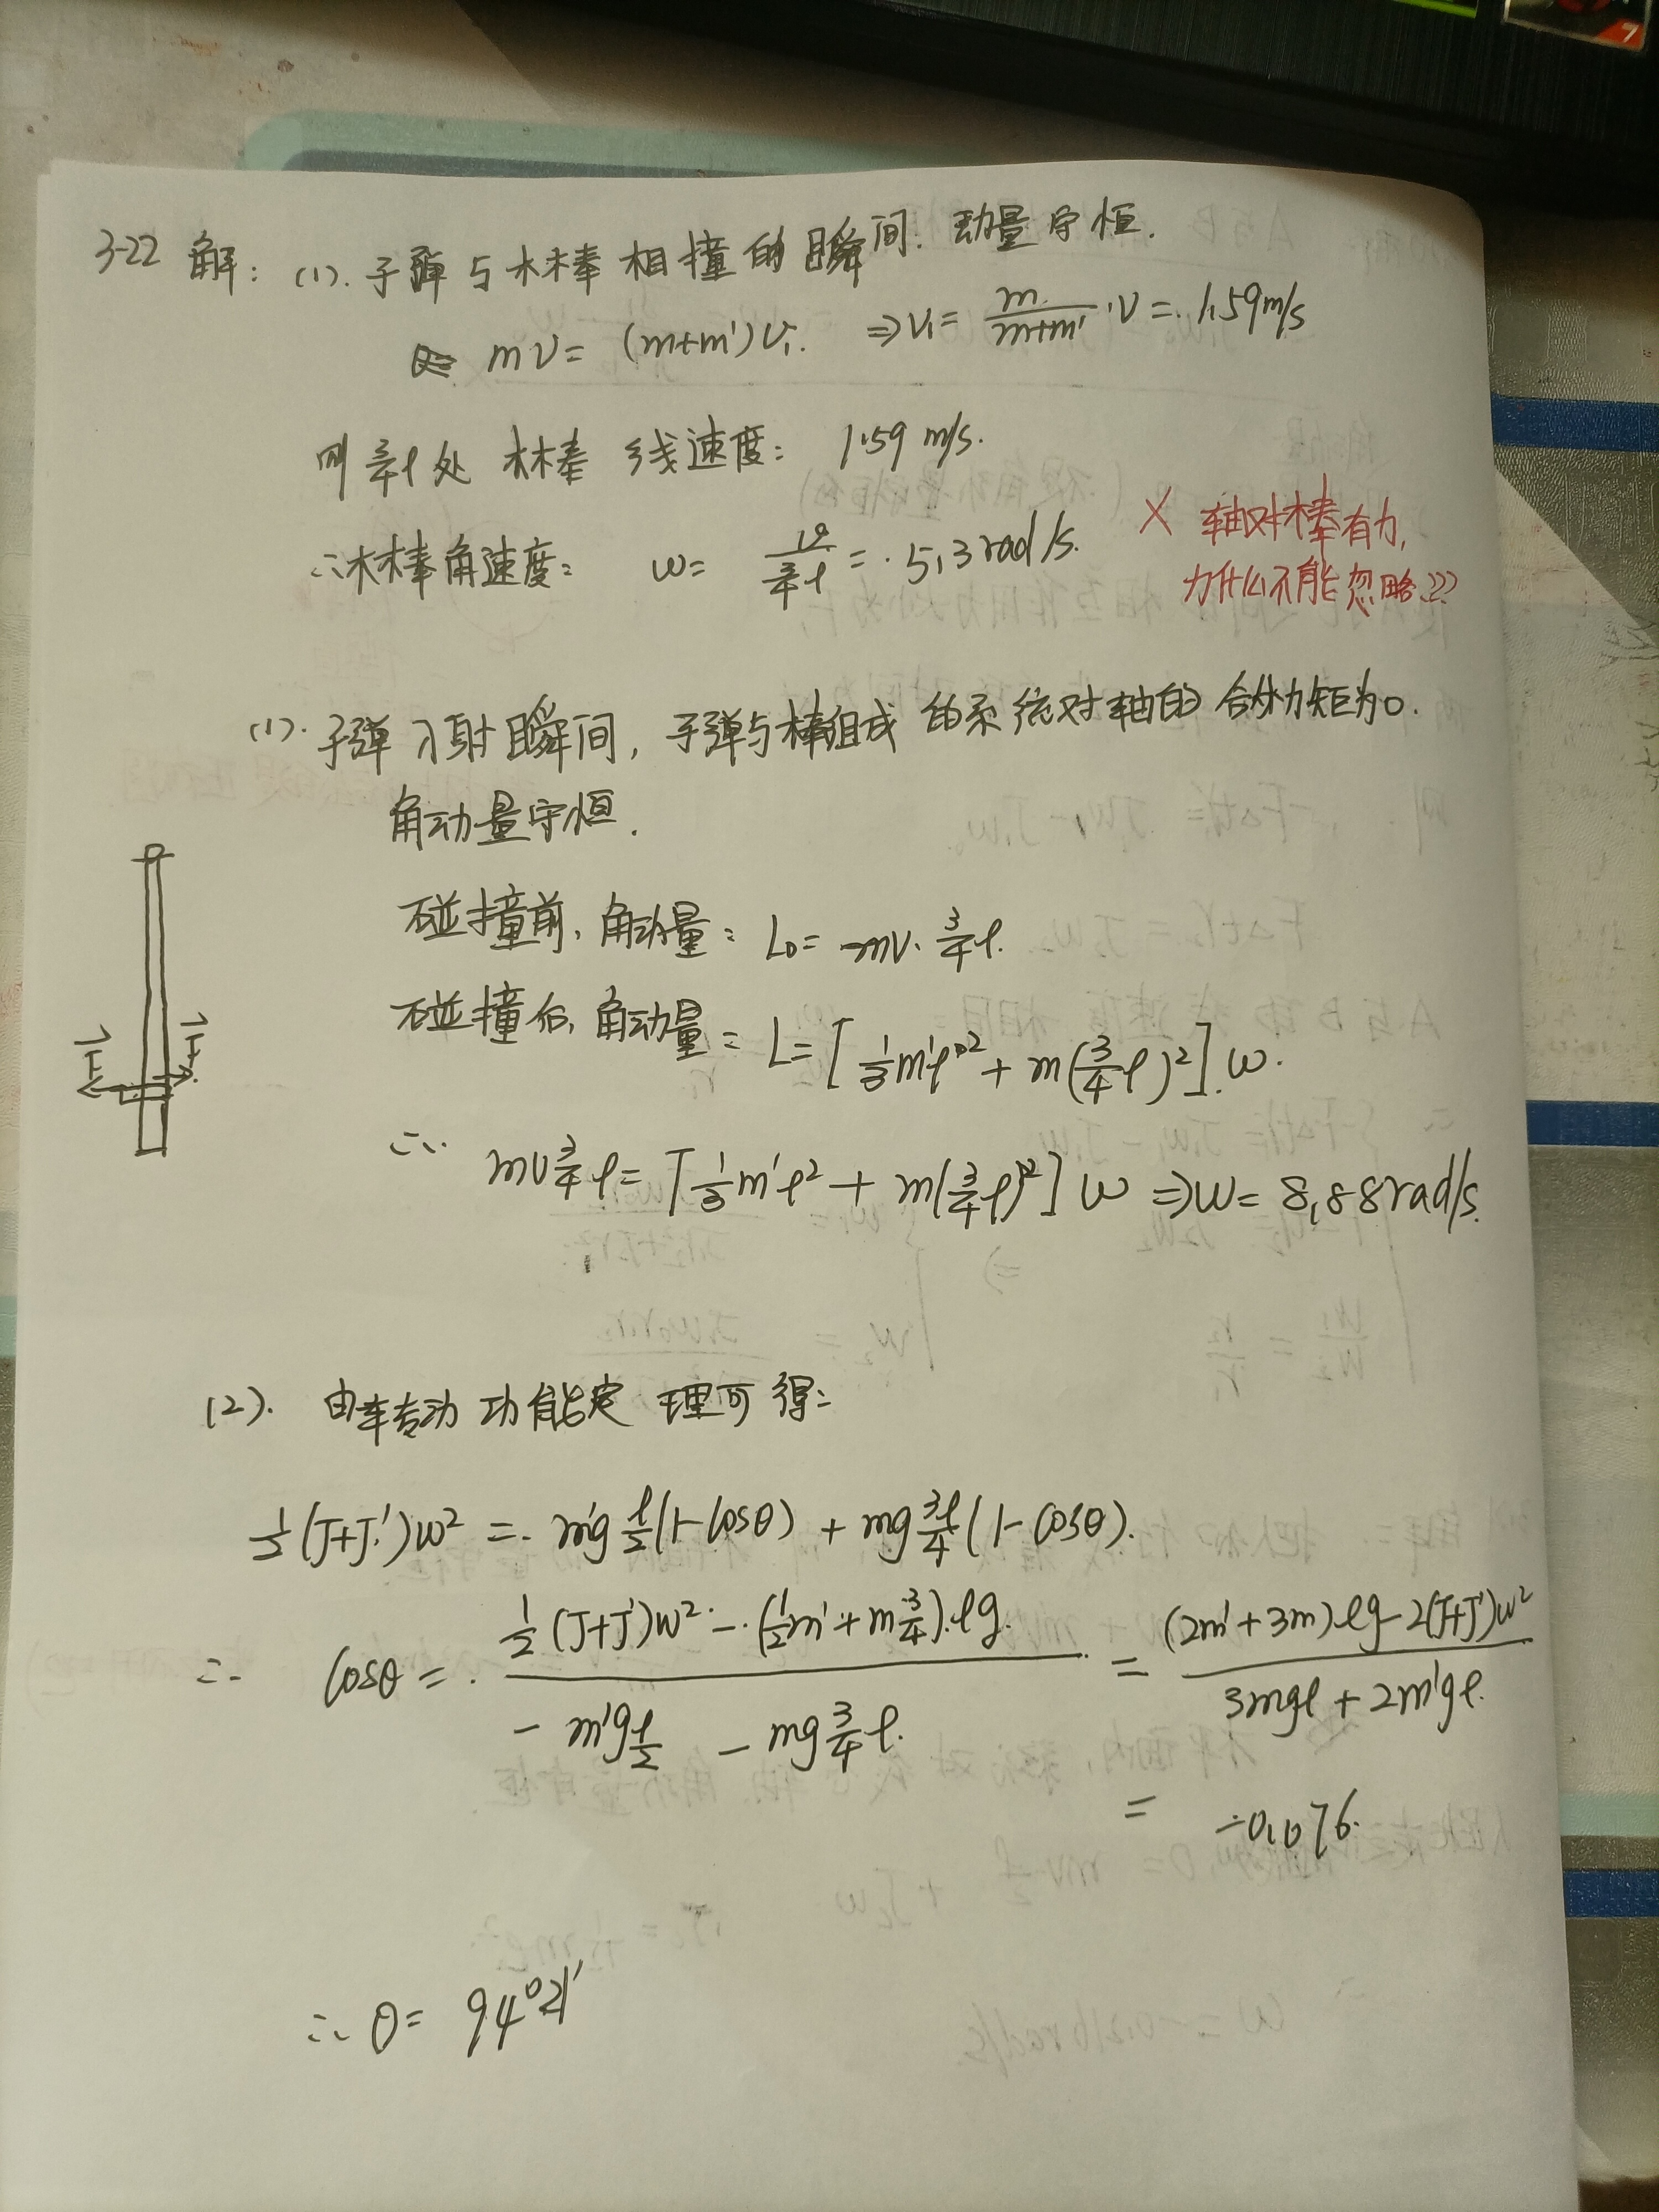 3-22 解: (1). 子弹与木棒相撞的瞬间. 动量守恒.
mv = (m+m')v₁. ⇒ v₁ = m/(m+m')·v = 1.59m/s
则 3/4 l 处 木棒 线速度: 1.59 m/s.
∴木棒角速度: ω = v/(3/4 l) = 5.3 rad/s.
× 轴对棒有力,
为什么不能忽略???
(1). 子弹入射瞬间, 子弹与棒组成的系统对轴的合外力矩为0.
角动量守恒.
碰撞前, 角动量: L₀ = mv·3/4 l.
碰撞后, 角动量: L = [1/3 m'l² + m(3/4 l)²].ω.
∴ mv 3/4 l = [1/3 m'l² + m(3/4 l)²] ω ⇒ ω = 8.88rad/s.
(2). 由转动功能定理可得:
1/2 (J+J')ω² = m'g l/2 (1-cosθ) + mg 3l/4 (1-cosθ).
∴ cosθ = [1/2 (J+J')ω² - (1/2 m' + m 3/4).lg] / [-m'g l/2 - mg 3/4 l] = [(2m'+3m).lg - 2(J+J')ω²] / [3mgl + 2m'gl]
= -0.076.
∴ θ = 94°21'
7